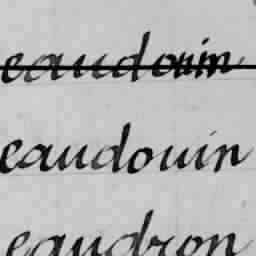 eaudouin
eaudouin
eaudron